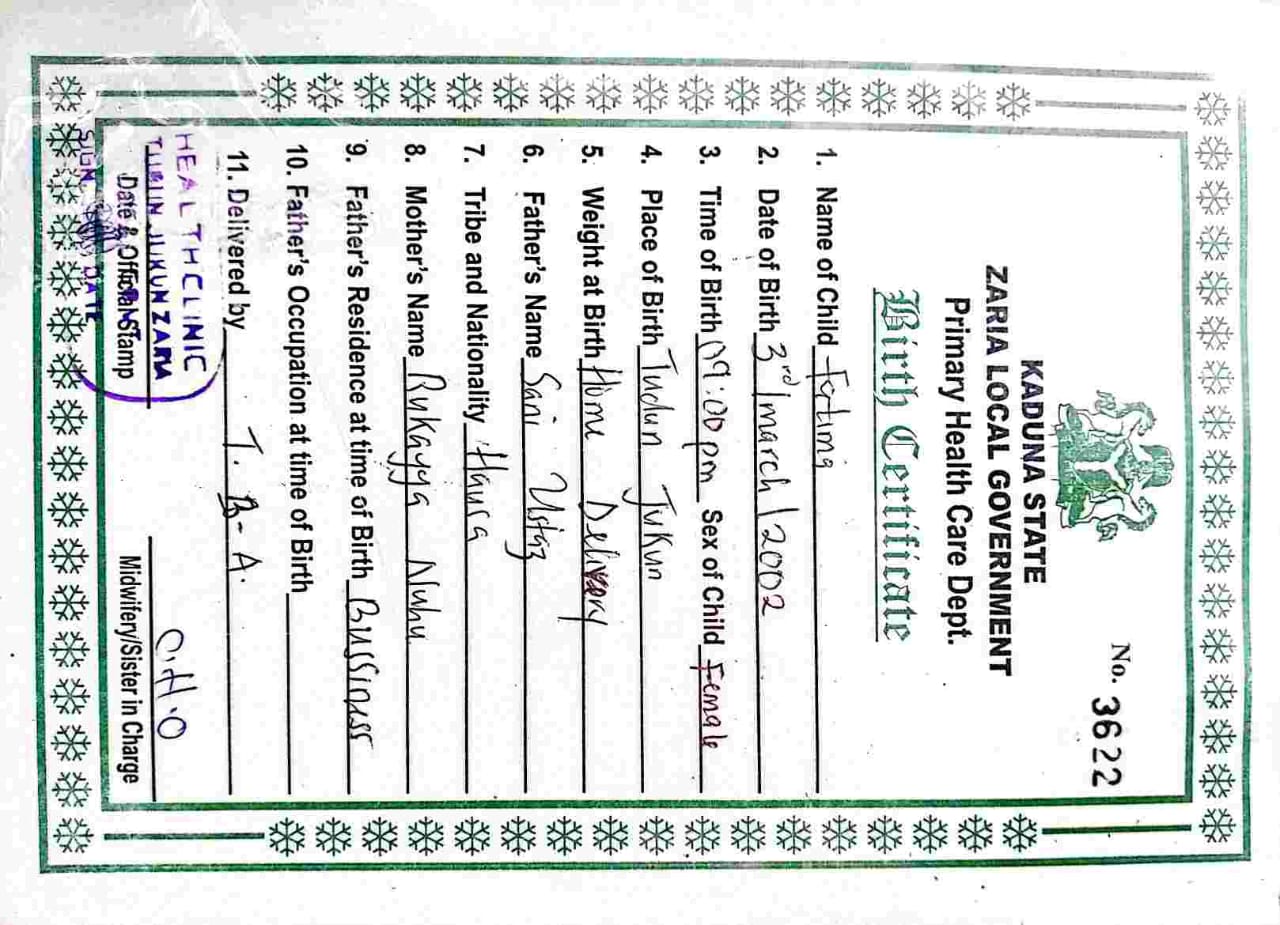 No. 3622
KADUNA STATE
ZARIA LOCAL GOVERNMENT
Primary Health Care Dept.
Birth Certificate
1. Name of Child Fatima
2. Date of Birth 3rd/march/2002
3. Time of Birth 09:00pm Sex of Child Female
4. Place of Birth Tudun Jukun
5. Weight at Birth Home Delivery
6. Father's Name Sani Ustaz
7. Tribe and Nationality Hausa
8. Mother's Name Rukayya Nuhu
9. Father's Residence at time of Birth Bussiness
10. Father's Occupation at time of Birth
11. Delivered by T.B.A.
HEALTH CLINIC
TUDUN JUKUN ZARIA
C.H.O
Date & Official Stamp
Midwifery/Sister in Charge
SIGN DATE